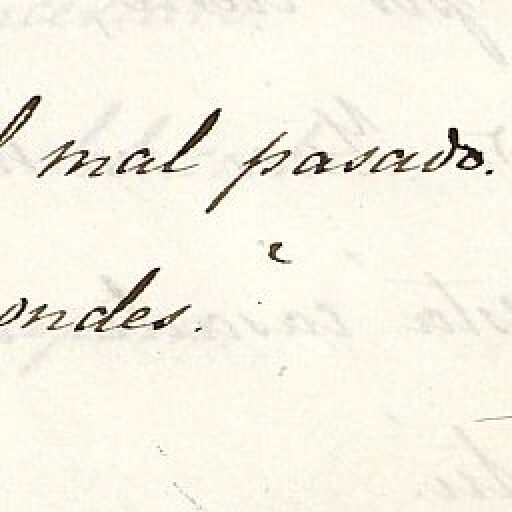 l mal pasado.
ondes.